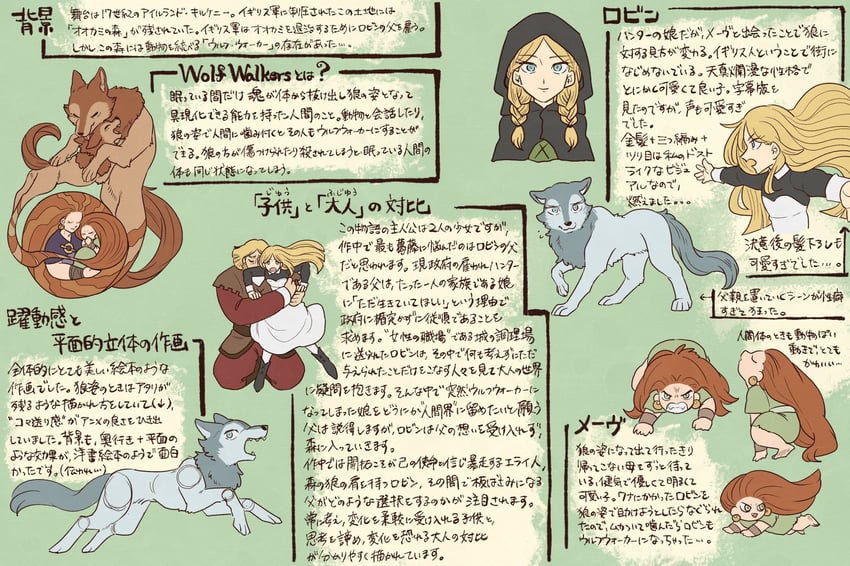 背景
舞台は17世紀のアイルランド・キルケニー。イギリス軍に制圧されたこの土地には
「オオカミの森」が残されていた。イギリス軍はオオカミを退治するためにロビンの父を雇う。
しかしこの森には動物を統べる「ウルフ・ウォーカー」の存在があった…。
Wolf Walkersとは?
眠っている間だけ魂が体から抜け出し狼の姿となって
具現化できる能力を持った人間のこと。動物と会話したり、
狼の姿で人間に噛み付くとその人もウルフウォーカーにすることが
できる。狼の方が傷つけられたり殺されてしまうと眠っている人間の
体も同じ状態になってしまう。
「子供」と「大人」の対比
じゅう
ふじゆう
この物語の主人公は2人の少女ですが、
作中で最も葛藤に悩んだのはロビンの父
だと思われます。現政府の雇われハンター
である父は、たった一人の家族である娘
に「ただ生きていてほしい」という理由で
政府に楯突かずに従順であることを
求めます。"女性の職場"である城の調理場
に送られたロビンは、その中で何も考えずただ
与えられたことだけこなす人々を見て大人の世界
に疑問を抱きます。そんな中で突然ウルフウォーカーに
なってしまった娘をどうにか"人間界"に留めたいと願う
父は説得しますが、ロビンは父の想いを受け入れず、
森に入っていきます。
作中では開拓こそが己の使命の信じ暴走するエライ人、
森の狼の肩を持つロビン、その間で板ばさみになる
父がどのような選択をするのかが注目されます。
常に考え、変化を柔軟に受け入れる子供と、
思考を諦め、変化を恐れる大人の対比
が分かりやすく描かれています。
躍動感と
平面的立体の作画
全体的にとても美しい絵本のような
作画でした。狼姿のときはアタリが
残るような描かれ方をしていて(↓)、
"コマ送り感"がアニメの良さを引き出
していました。背景も、奥行き+平面の
ような効果が、洋書絵本のようで面白
かったです。(伝われ…)
ロビン
ハンターの娘だが、メーヴと出会ったことで狼に
対する見方が変わる。イギリス人ということで街に
なじめないでいる。天真爛漫な性格で
とにかく可愛くて良い子。字幕版
を見たのですが、声も可愛すぎ
でした。
金髪+三つ編み+
ツリ目は私のドスト
ライクなビジュ
アルなので、
燃えました…。
決意後の髪下ろしも
可愛すぎでした…。
人間体のときも動物っぽい
動きで、とても
かわいい…
メーヴ
狼の姿になって出て行ったきり
帰ってこない母をずっと待って
いる。健気で優しくて明るくて
可愛い子。ワナにかかったロビンを
狼の姿で助けようとしたらなぐられ
たので、ムカついて噛んだらロビンも
ウルフウォーカーになっちゃった…。